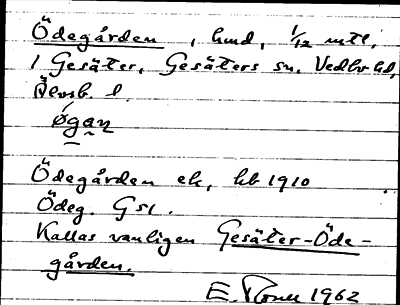 Ödegården, hmd, 1/12 mtl,
1 Gesäter, Gesäters sn, Vedbo hd,
Älvsb. l.
øgan
Ödegården ek, kb 1910
Ödeg. Gsl.
Kallas vanligen Gesäter-Öde-
gården.
E. 1962